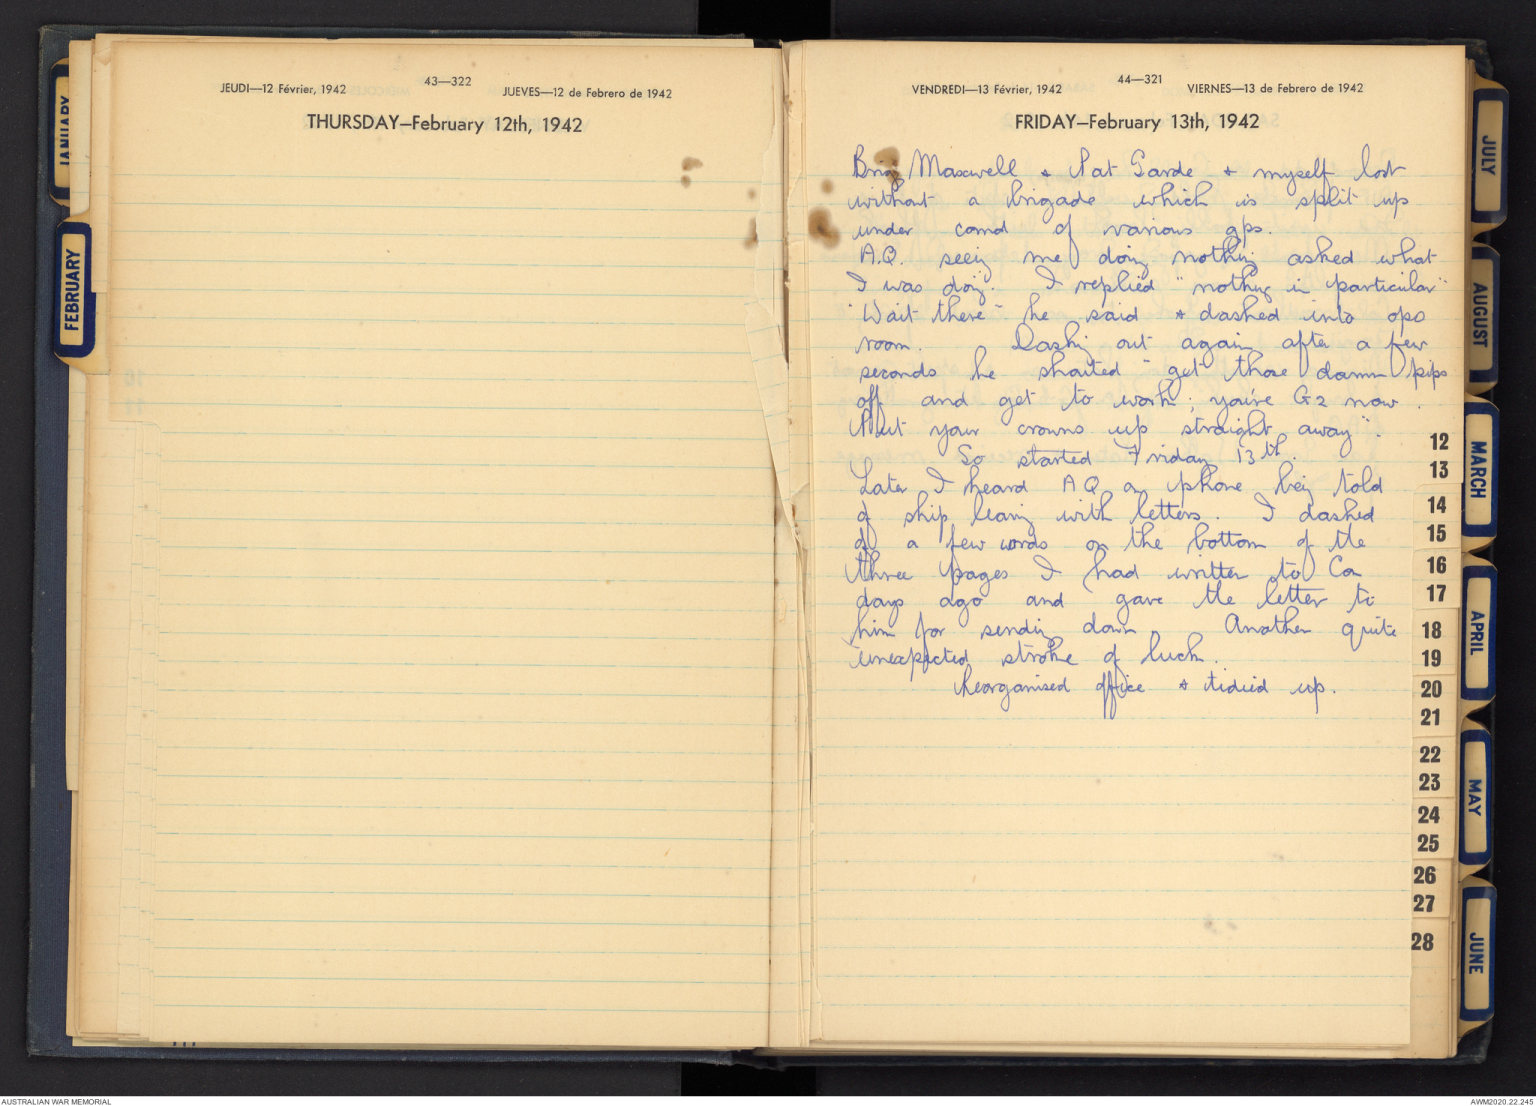 JANUARY
FEBRUARY
JEUDI—12 Février, 1942
43—322
JUEVES—12 de Febrero de 1942
THURSDAY—February 12th, 1942
VENDREDI—13 Février, 1942
44—321
VIERNES—13 de Febrero de 1942
FRIDAY—February 13th, 1942
Brig Maxwell & Pat Garde & myself lost
without a brigade which is split up
under comd of various gps.
A.Q. seeing me doing nothing asked what
I was doing. I replied "nothing in particular"
"Wait there" he said & dashed into ops
room. Dashing out again after a few
seconds he shouted "get those damn pips
off and get to work; you're G2 now.
Put your crowns up straight away".
So started Friday 13th.
Later I heard AQ on phone being told
of ship leaving with letters. I dashed
off a few words on the bottom of the
three pages I had written to Con
days ago and gave the letter to
him for sending down. Another quite
unexpected stroke of luck.
Reorganised office & tidied up.
12
13
14
15
16
17
18
19
20
21
22
23
24
25
26
27
28
JULY
AUGUST
MARCH
APRIL
MAY
JUNE
AUSTRALIAN WAR MEMORIAL
AWM2020.22.245